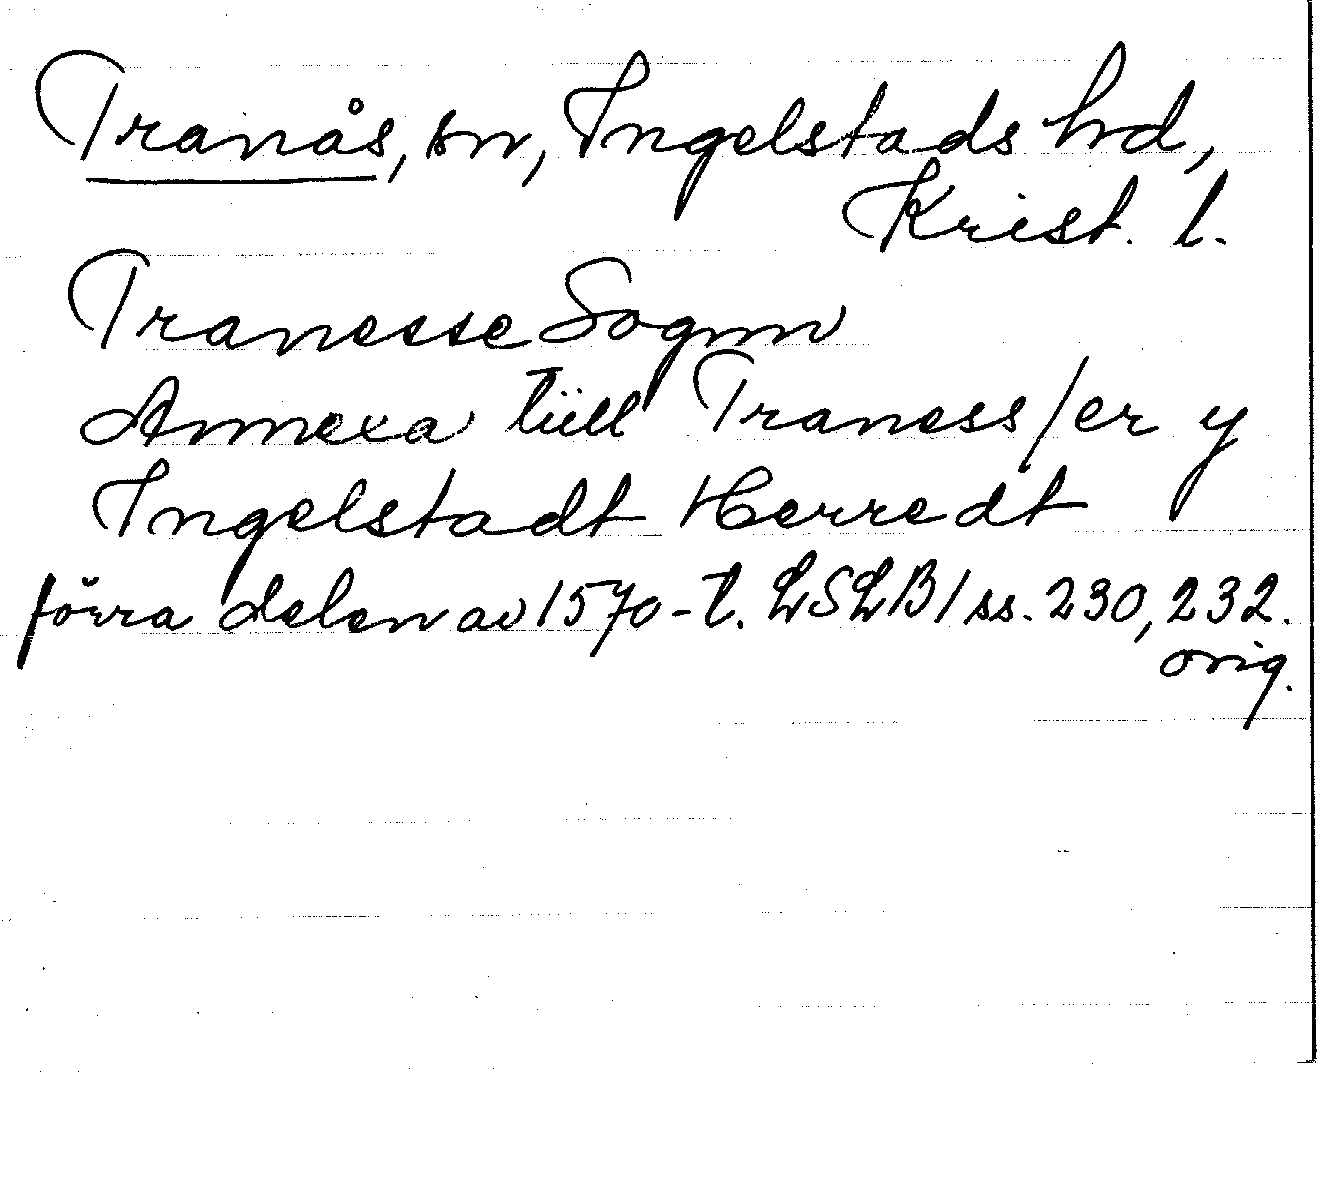 Tranås, sn, Ingelstads hd,
Krist. l.
Tranesse Sognn
Annexa tüll Traness/er y
Ingelstadt Herredt
förra delen av 1570-t. LSLB1 ss. 230, 232.
orig.